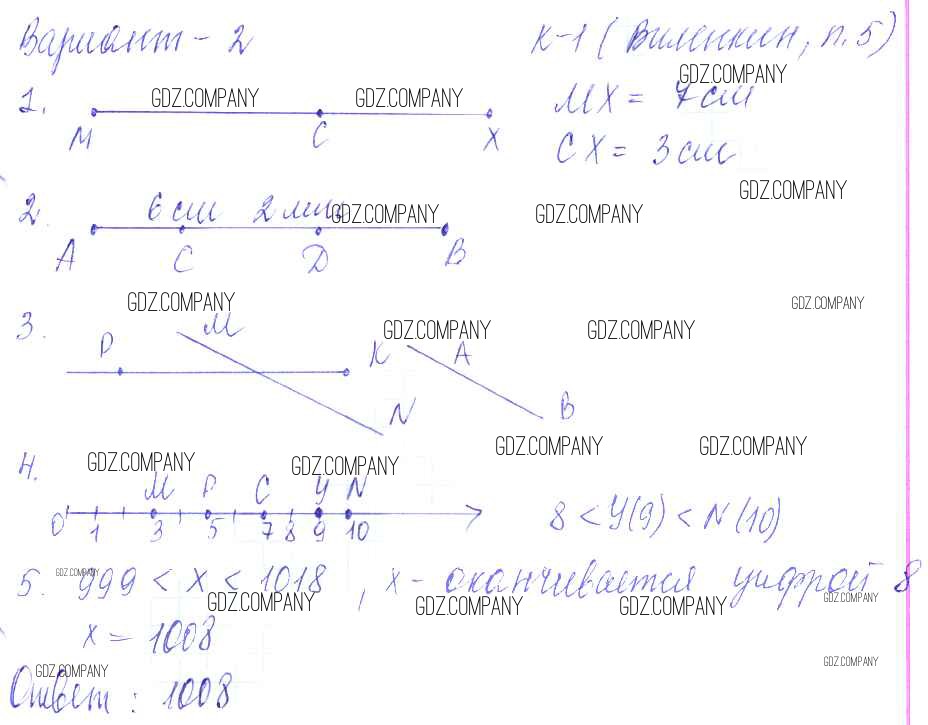 Вариант - 2 К-1 (Виленкин, п.5)
GDZ.COMPANY
1. GDZ.COMPANY GDZ.COMPANY MX = 7 см
M C X CX = 3 см
GDZ.COMPANY
2. 6 см 2 мм GDZ.COMPANY GDZ.COMPANY
A C D B
GDZ.COMPANY GDZ.COMPANY
3. M GDZ.COMPANY GDZ.COMPANY
P K A
N B
GDZ.COMPANY GDZ.COMPANY
4. GDZ.COMPANY GDZ.COMPANY
M P C Y N
0 1 3 5 7 8 9 10 8 < Y(9) < N(10)
GDZ.COMPANY
5. 999 < x < 1018, x - оканчивается цифрой 8
GDZ.COMPANY GDZ.COMPANY GDZ.COMPANY GDZ.COMPANY
x = 1008
GDZ.COMPANY GDZ.COMPANY
Ответ: 1008